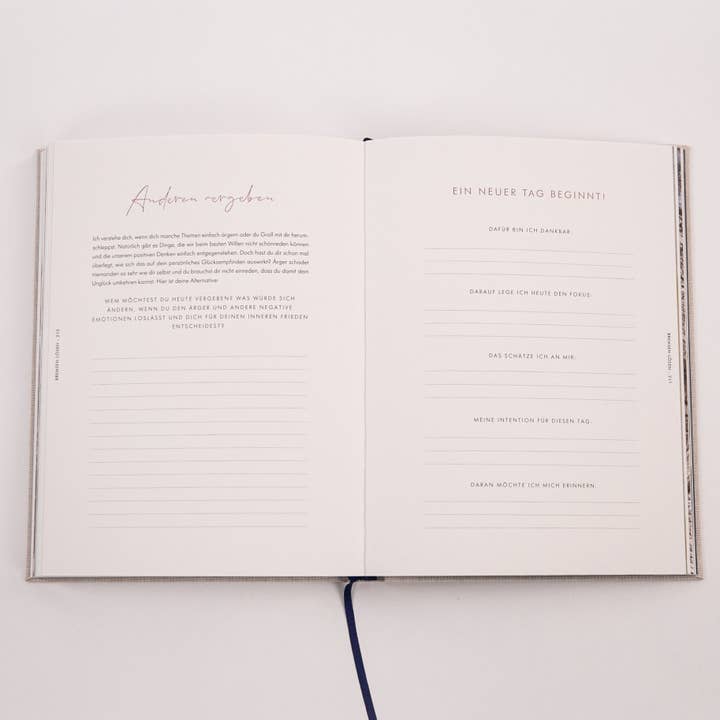 Anderen vergeben
Ich verstehe dich, wenn dich manche Themen einfach ärgern oder du Groll mit dir herum-
schleppst. Natürlich gibt es Dinge, die wir beim besten Willen nicht schönreden können
und die unserem positiven Denken einfach entgegenstehen. Doch hast du dir schon mal
überlegt, wie sich das auf dein persönliches Glücksempfinden auswirkt? Ärger schadet
niemandem so sehr wie dir selbst und du brauchst dir nicht einreden, dass du damit dein
Unglück umkehren kannst. Hier ist deine Alternative:
WEM MÖCHTEST DU HEUTE VERGEBEN? WAS WÜRDE SICH
ÄNDERN, WENN DU DEN ÄRGER UND ANDERE NEGATIVE
EMOTIONEN LOSLÄSST UND DICH FÜR DEINEN INNEREN FRIEDEN
ENTSCHEIDEST?
EIN NEUER TAG BEGINNT!
DAFÜR BIN ICH DANKBAR:
DARAUF LEGE ICH HEUTE DEN FOKUS:
DAS SCHÄTZE ICH AN MIR:
MEINE INTENTION FÜR DIESEN TAG:
DARAN MÖCHTE ICH MICH ERINNERN: